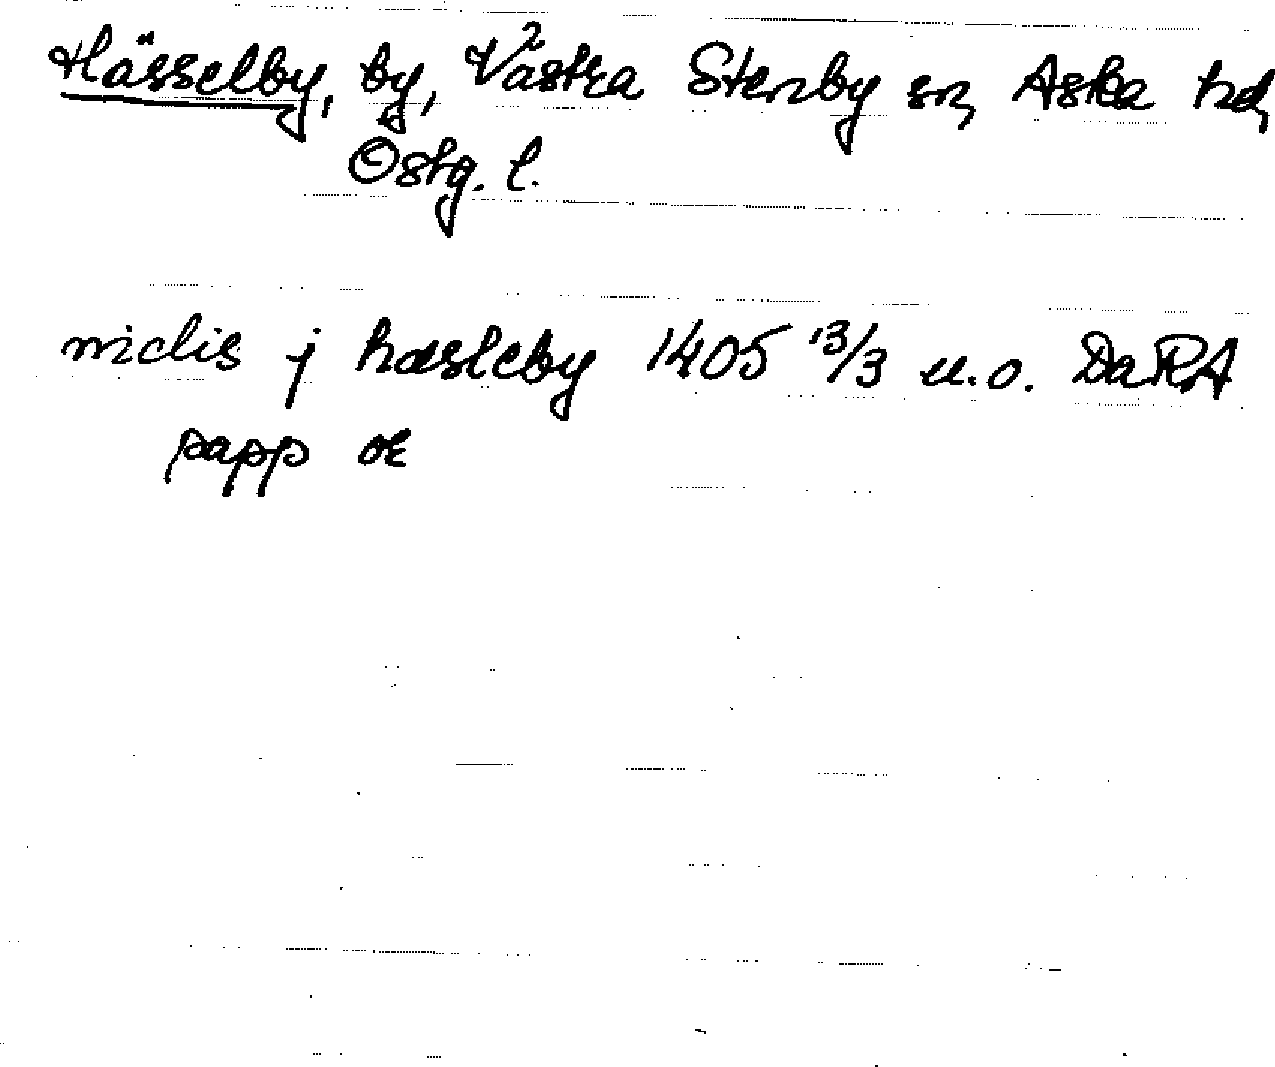 Hässelby, by, Västra Stenby sn, Aska hd,
Östg. l.
niclis j hæsleby 1405 13/3 u.o. DaRA
papp or